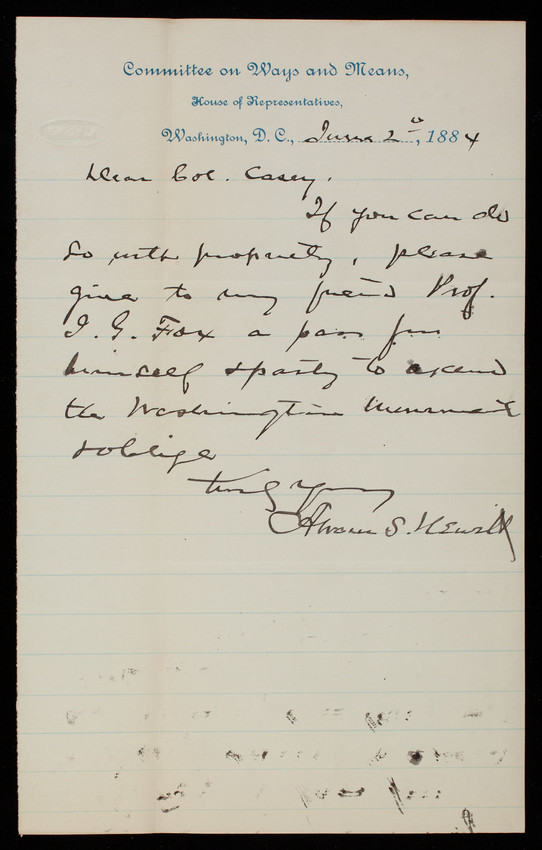 Committee on Ways and Means,
House of Representatives,
Washington, D. C., June 2d, 1884
Dear Col. Casey.
If you can do
so with propriety, please
give to my friend Prof.
I. G. Fox a pass for
himself & party to ascend
the Washington Monument
& oblige
Truly Yours
Abram S. Hewitt